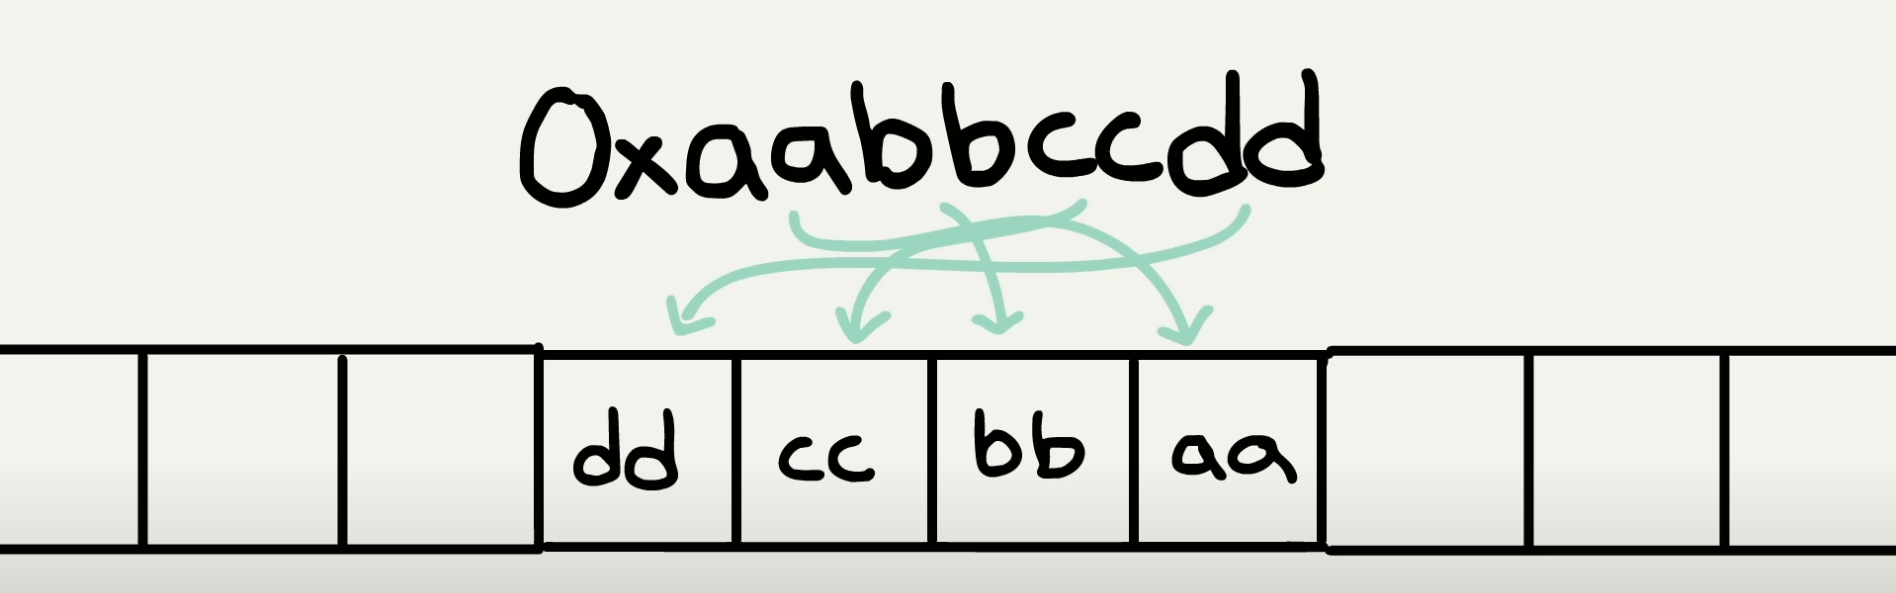 0xaabbccdd
dd cc bb aa